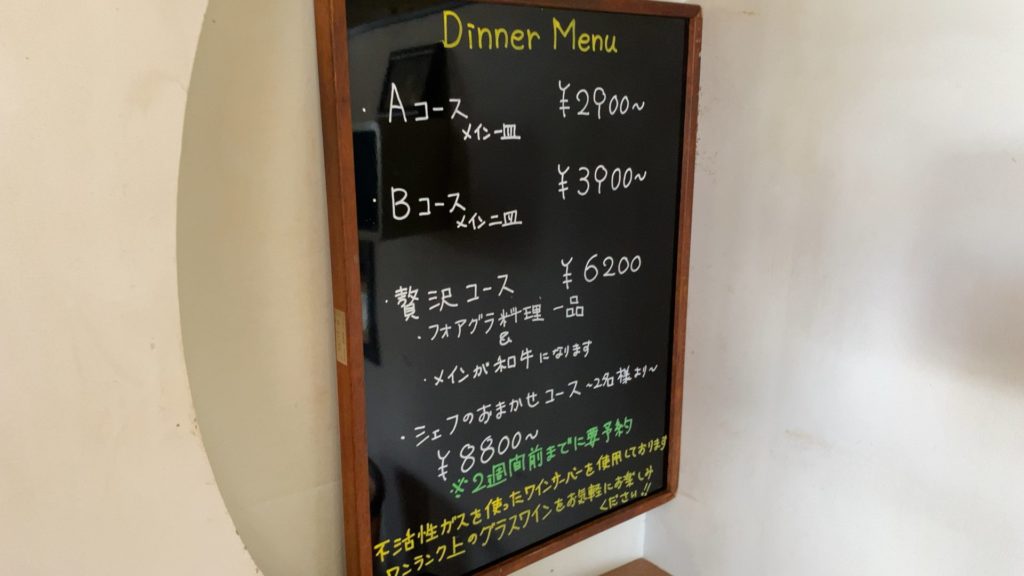 Dinner Menu
・Aコース ¥2900~
メイン一皿
・Bコース ¥3900~
メイン二皿
・贅沢コース ¥6200
・フォアグラ料理一品
&
・メインが和牛になります
・シェフのおまかせコース~2名様より~
¥8800~
※2週間前までに要予約
不活性ガスを使ったワインサーバーを使用しております
ワンランク上のグラスワインをお気軽にお楽しみ
ください!!